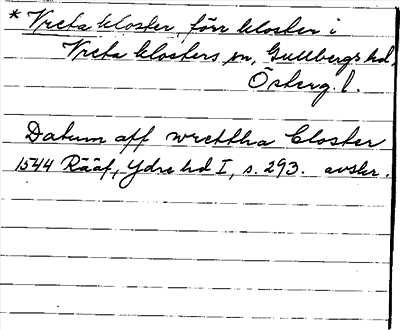 * Vreta kloster, förr kloster i
Vreta klosters sn, Gullbergs hd,
Österg. l.
Datum aff wrettha Closter
1544 Rääf, Ydre hd I, s. 293. avskr.